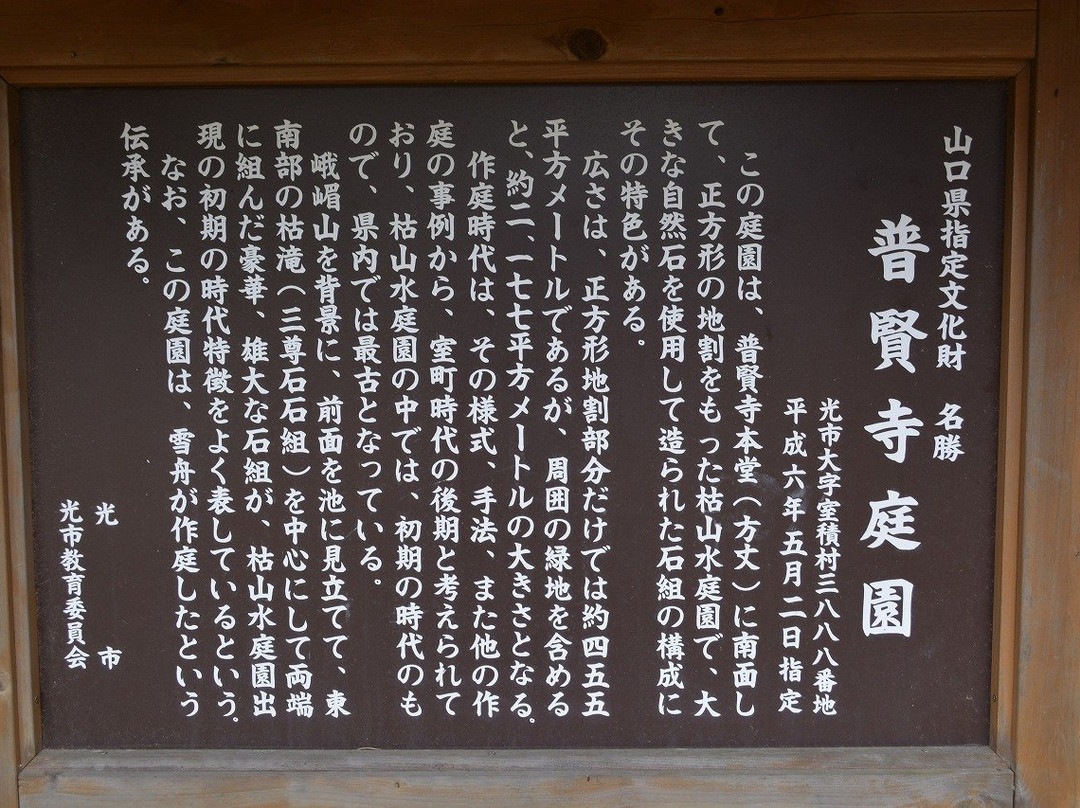 山口県指定文化財　名勝
普賢寺庭園
光市大字室積村三八八八番地
平成六年五月二日指定
この庭園は、普賢寺本堂（方丈）に南面し
て、正方形の地割をもった枯山水庭園で、大
きな自然石を使用して造られた石組の構成に
その特色がある。
広さは、正方形地割部分だけでは約四五五
平方メートルであるが、周囲の緑地を含める
と、約二、一七七平方メートルの大きさとなる。
作庭時代は、その様式、手法、また他の作
庭の事例から、室町時代の後期と考えられて
おり、枯山水庭園の中では、初期の時代のも
ので、県内では最古となっている。
峨嵋山を背景に、前面を池に見立てて、東
南部の枯滝（三尊石石組）を中心にして両端
に組んだ豪華、雄大な石組が、枯山水庭園出
現の初期の時代特徴をよく表しているという。
なお、この庭園は、雪舟が作庭したという
伝承がある。
光　市
光市教育委員会